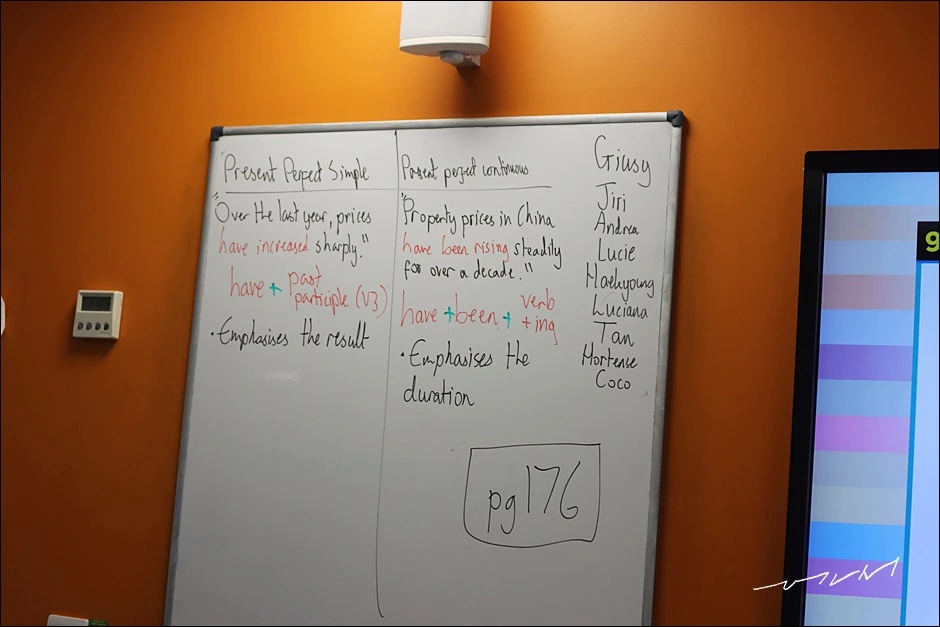 Present Perfect Simple
"Over the last year, prices
have increased sharply."
have + past
participle (V3)
• Emphasises the result
Present perfect continuous
"Property prices in China
have been rising steadily
for over a decade."
have + been + verb
+ing
• Emphasises the
duration
pg 176
Giusy
Jiri
Andrea
Lucie
Haekyoung
Luciana
Tan
Hortense
Coco
9